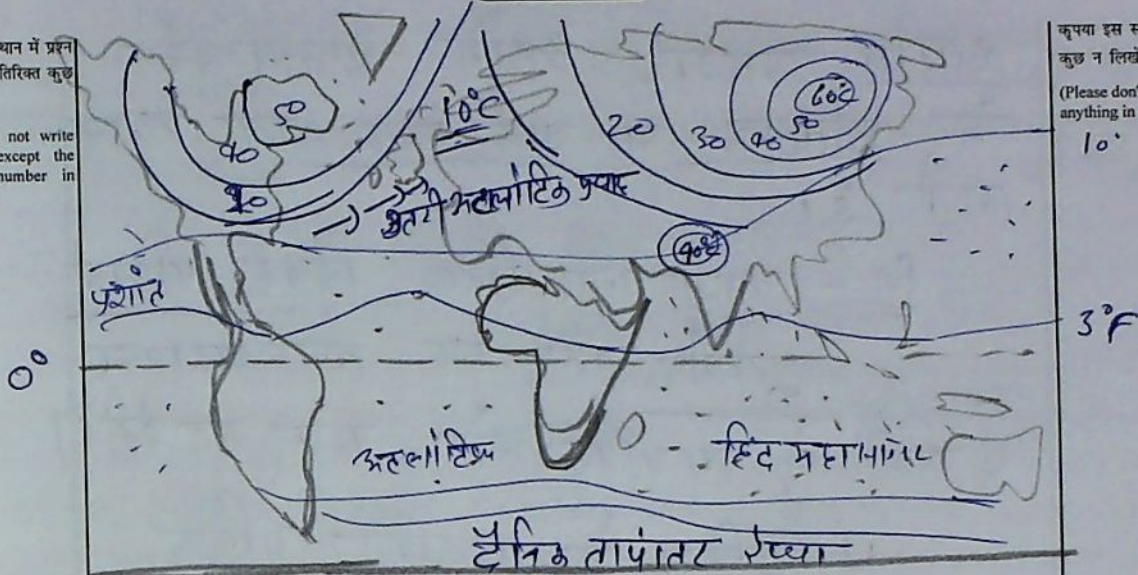 थान में प्रश्न
तिरिक्त कुछ
not write
except the
number in
कृपया इस स
कुछ न लिखें
(Please don't
anything in
50
40
10°C
20
30
40
50
60°C
10°
उत्तरी अटलांटिक प्रवाह
प्रशांत
3°F
0°
अटलांटिक
हिंद महासागर
दैनिक तापांतर रेखा